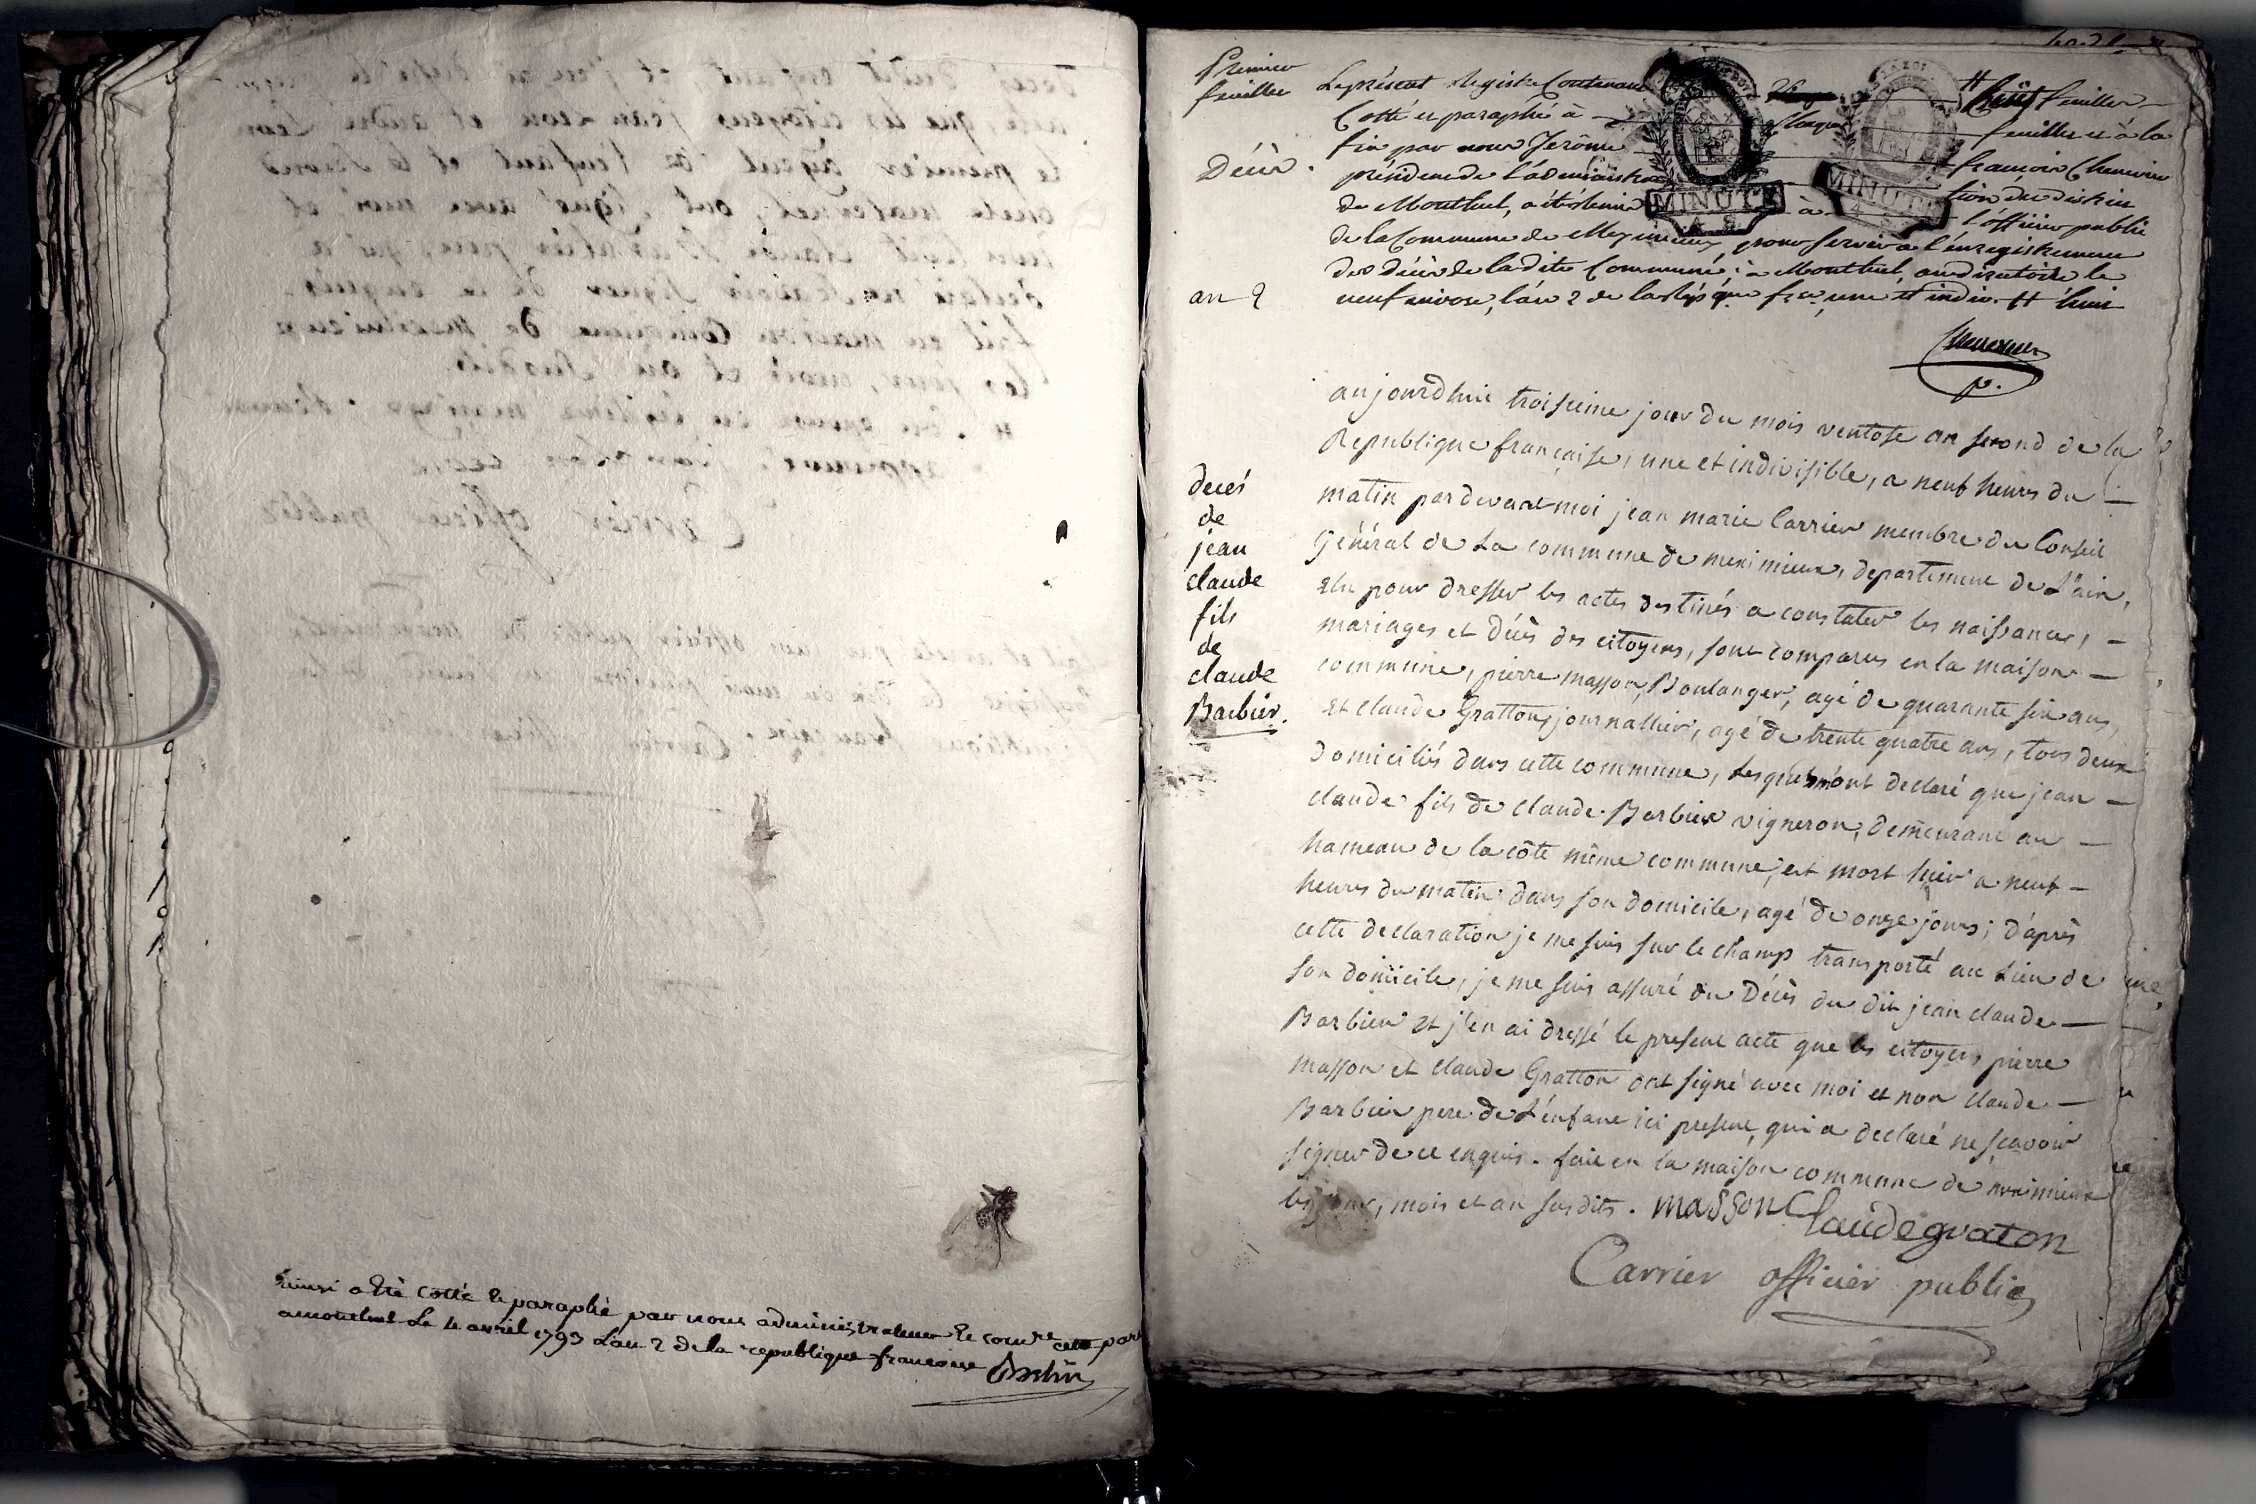 ainsi a été cotté et paraphé par nous administrateur et
a montluel Le 4 avril 1793 L'an 2 de la republique francoise
Premier
feuillet
Décès.
an 2
Le présent Registre Contenant huit feuillets
Cotté et paraphé à chaque feuillet et à la
fin par nous Jerôme francois Chenevier
président de l'administration du district
de Montluel, a été remis à l'officier public
de la Commune de Meximieux pour servir à l'enregistrement
des décès de ladite Commune; à Montluel, au directoire le
neuf nivose, l'an 2 de la Répque frse, une et indiv. # huit
MINUTE
MINUTE
4. S.
decés
de
jean
claude
fils
de
claude
Barbier.
aujourdhui troisieme jour du mois ventose an second de la
Republique française, une et indivisible, a neuf heures du
matin pardevant moi jean marie Carrier membre du Conseil
Général de La commune de meximieux, departement de L'ain,
elu pour dresser les actes destinés a constater les naissances,
mariages et décès des citoyens, sont comparus en la maison
commune, pierre masson, Boulanger, agé de quarante six ans,
et claude Gratton, journallier, agé de trente quatre ans, tous deux
domiciliés dans cette commune, Lesquels m'ont declaré que jean
claude fils de claude Barbier vigneron, demeurant au
hameau de la côte même commune, est mort hier a neuf
heures du matin dans son domicile, agé de onze jours; d'après
cette declaration je me suis sur le champ transporté au Lieu de
son domicile, je me suis assuré du Décès du dit jean claude
Barbier et j'en ai dressé le present acte que les citoyens pierre
masson et claude Gratton ont signé avec moi et non claude
Barbier pere de L'enfant ici present, qui a declaré ne sçavoir
signer de ce enquis. fait en la maison commune de meximieux
les jour, mois et an susdits. masson Claude graton
Carrier officier public